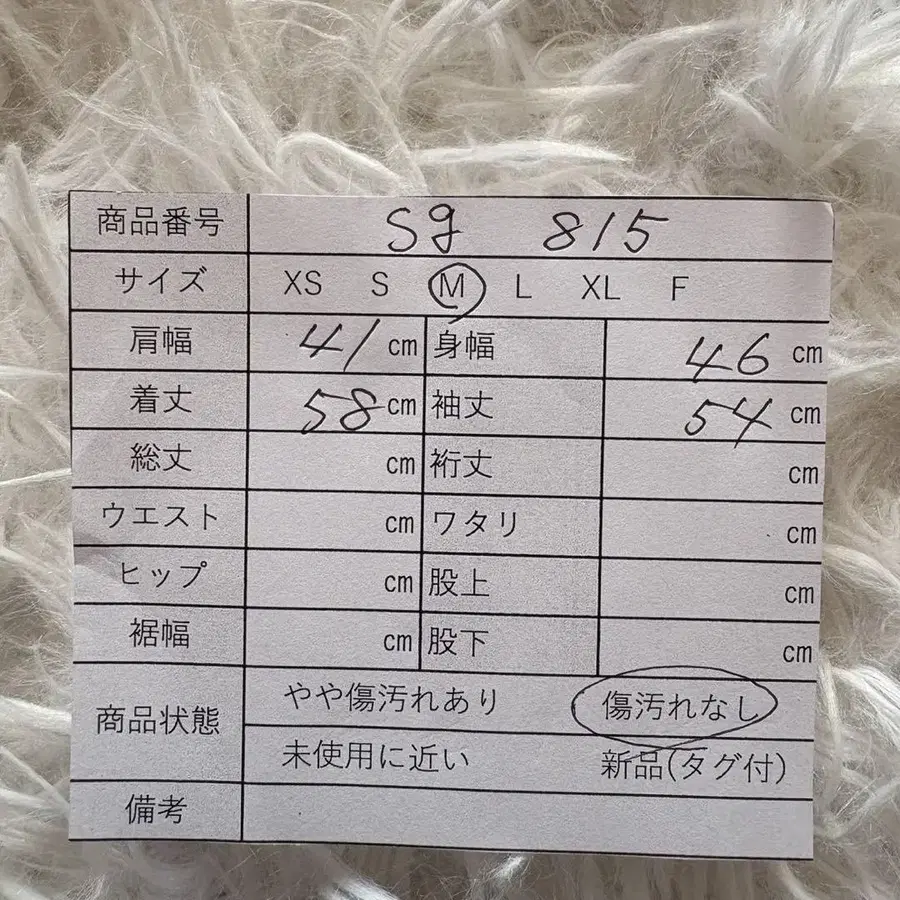 商品番号 Sg 815
サイズ XS S M L XL F
肩幅 41 cm 身幅 46 cm
着丈 58 cm 袖丈 54 cm
総丈 cm 裄丈 cm
ウエスト cm ワタリ cm
ヒップ cm 股上 cm
裾幅 cm 股下 cm
商品状態 やや傷汚れあり 傷汚れなし
未使用に近い 新品(タグ付)
備考